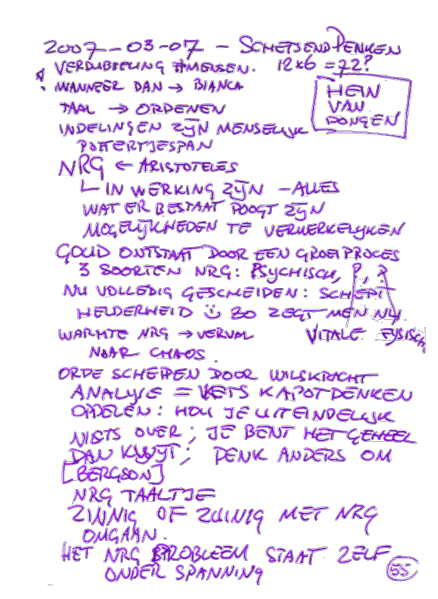 2007-03-07 - SCHETSEND DENKEN
VERDUBBELING #MENSEN. 12x6 = 72?
WANNEER DAN → BIANCA
HEIN
VAN
DONGEN
TAAL → ORDENEN
INDELINGEN ZIJN MENSELIJK
POTTERTJESPAN
NRG ← ARISTOTELES
IN WERKING ZIJN - ALLES
WAT ER BESTAAT POOGT ZIJN
MOGELIJKHEDEN TE VERWERKELIJKEN
GOUD ONTSTAAT DOOR EEN GROEIPROCES
3 SOORTEN NRG: PSYCHISCH, ?, ?
NU VOLLEDIG GESCHEIDEN: SCHEPT
HELDERHEID ZO ZEGT MEN NU
WARMTE NRG → VERVAL VITALE FYSISCH
NAAR CHAOS.
ORDE SCHEPPEN DOOR WILSKRACHT
ANALYSE = IETS KAPOT DENKEN
OPDELEN: HOU JE UITEINDELIJK
NIETS OVER; JE BENT HET GEHEEL
DAN KWIJT; DENK ANDERS OM
[BERGSON]
NRG TAALTJE
ZINNIG OF ZUINIG MET NRG
OMGAAN.
HET NRG PROBLEEM STAAT ZELF
ONDER SPANNING
55